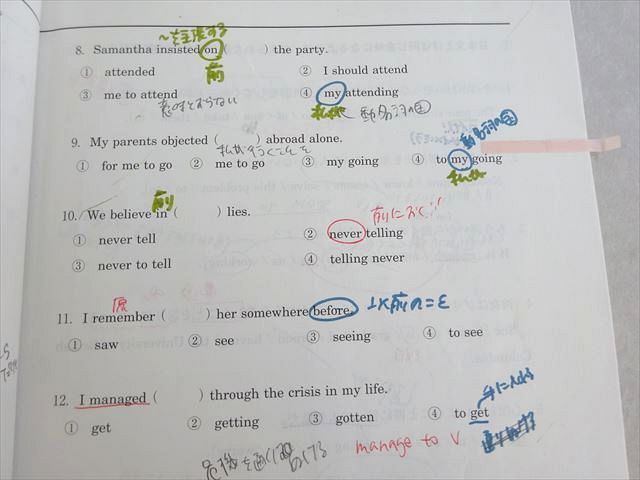 ～主張する
8. Samantha insisted on ( ) the party.
前
① attended ② I should attend
③ me to attend ④ my attending
意味とおらない 私が 動名詞の主
9. My parents objected ( ) abroad alone.
私が行くことを
動名詞の主
① for me to go ② me to go ③ my going ④ to my going
私が
前
10. We believe in ( ) lies.
前におく!!
① never tell ② never telling
③ never to tell ④ telling never
11. I remember ( ) her somewhere before.
以前のこと
① saw ② see ③ seeing ④ to see
12. I managed ( ) through the crisis in my life.
手に入れる
① get ② getting ③ gotten ④ to get
manage to V